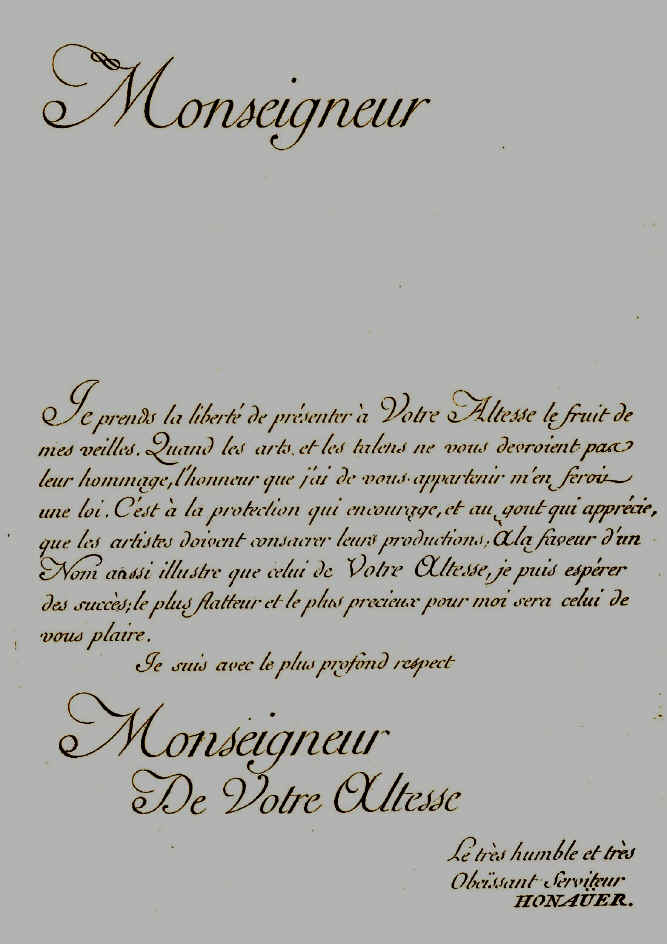 Monseigneur
Je prends la liberté de présenter à Votre Altesse le fruit de
mes veilles. Quand les arts et les talens ne vous devroient pas
leur hommage, l'honneur que j'ai de vous appartenir m'en feroit
une loi. C'est à la protection qui encourage, et au gout qui apprécie,
que les artistes doivent consacrer leurs productions; A la faveur d'un
Nom aussi illustre que celui de Votre Altesse, je puis espérer
des succès; le plus flatteur et le plus precieux pour moi sera celui de
vous plaire.
Je suis avec le plus profond respect
Monseigneur
De Votre Altesse
Le très humble et très
Obeïssant Serviteur
HONAÜER.